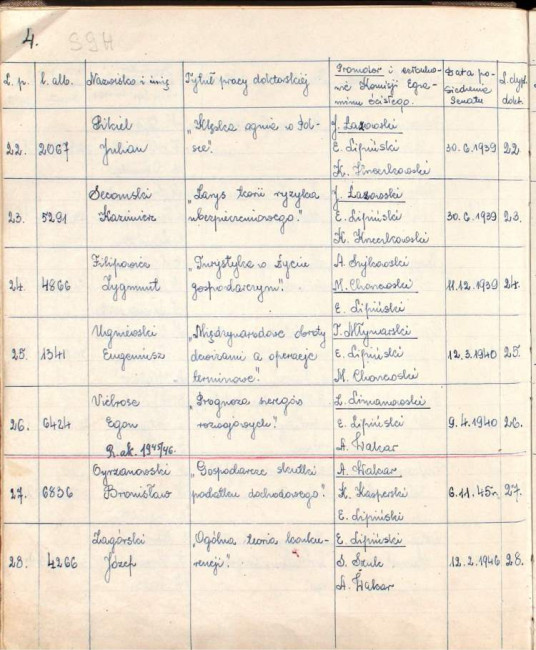 4. SGH
L. p. l. alb. Nazwisko i imię Tytuł pracy doktorskiej Promotor i członko- Data po- L. dypl.
wie Komisji Egza- siedzenia dokt.
minu ścisłego. Senatu
Pikiel „Klęska ognia w Pol- J. Lazowski
22. 2067 Julian sce". E. Lipiński 30.6.1939 22.
K. Krzeczkowski
Secomski „Zarys teorii ryzyka J. Lazowski
23. 5291 Kazimierz ubezpieczeniowego". E. Lipiński 30.6.1939 23.
K. Krzeczkowski
Filipowicz „Turystyka w życiu A.
24. 4866 Zygmunt gospodarczym". M. 11.12.1939 24.
E. Lipiński
„Międzynarodowe obroty F. Młynarski
25. 1341 Eugeniusz dewizami a operacje E. Lipiński 12.3.1940 25.
terminowe". M.
Vielrose „Prognoza szeregów L. Limanowski
26. 6424 Egon rozwojowych". E. Lipiński 9.4.1940 26.
R. ak. 1945/46. A. Wakar
Cyrzanowski „Gospodarcze skutki A. Wakar
27. 6836 Bronisław podatku dochodowego". K. Kasperski 6.11.45r. 27.
E. Lipiński
Zagórski „Ogólna teoria konku- E. Lipiński
28. 4266 Józef rencji". S. Szulc 12.2.1946 28.
A. Wakar